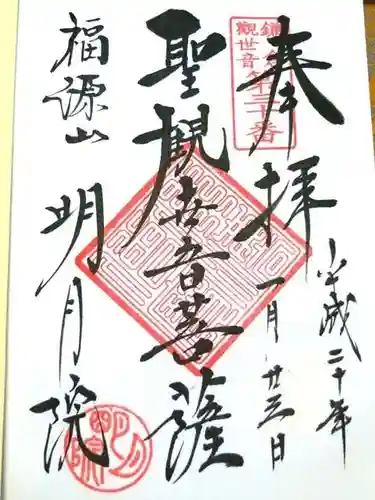 奉拝
鎌倉
觀世音第三十番
平成二十年
一月廿三日
聖観世音菩薩
福源山
明月院